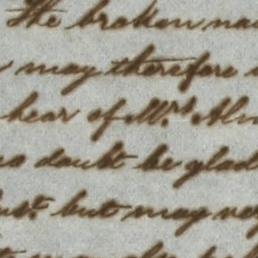 The broken na
may therefore
hear of Mrs. Alm
doubt be glad
but may ve